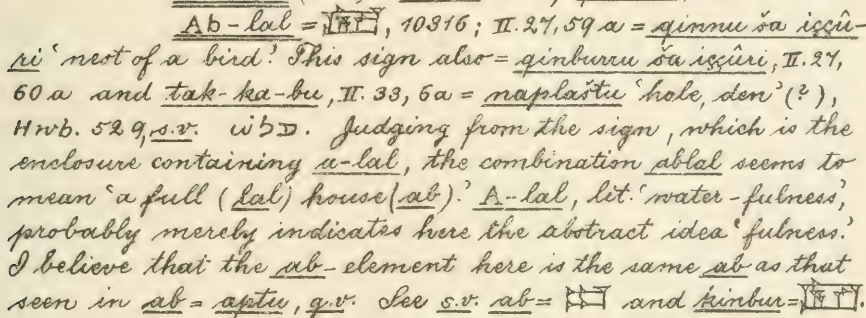 Ab-lal = 𒀊, 10316; II. 27, 59 a = qinnu ša iççû-
ri 'nest of a bird.' This sign also = qinburru ša iççûri, II. 27,
60 a and tak-ka-bu, II. 33, 6a = naplaštu 'hole, den' (?),
Hwb. 529, s.v. פלש. Judging from the sign, which is the
enclosure containing a-lal, the combination ablal seems to
mean 'a full (lal) house (ab).' A-lal, lit. 'water-fulness,'
probably merely indicates here the abstract idea 'fulness.'
I believe that the ab-element here is the same ab as that
seen in ab = aptu, q.v. See s.v. ab = 𒀊 and kinbur =